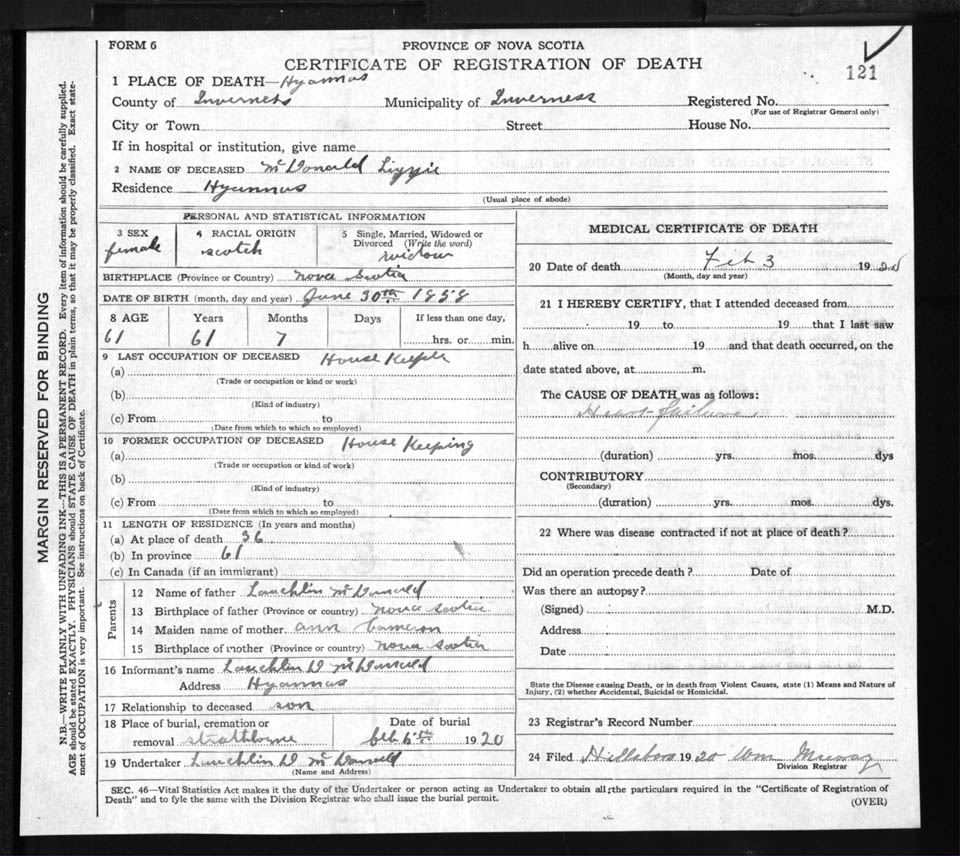 FORM 6
PROVINCE OF NOVA SCOTIA
CERTIFICATE OF REGISTRATION OF DEATH
121
1 PLACE OF DEATH—Hyannas
County of Inverness Municipality of Inverness Registered No.
(For use of Registrar General only)
City or Town Street House No.
If in hospital or institution, give name
2 NAME OF DECEASED McDonald Lizzie
Residence Hyannas
(Usual place of abode)
PERSONAL AND STATISTICAL INFORMATION
3 SEX
female
4 RACIAL ORIGIN
scotch
5 Single, Married, Widowed or
Divorced (Write the word)
widow
BIRTHPLACE (Province or Country) Nova Scotia
DATE OF BIRTH (month, day and year) June 30th 1858
8 AGE Years Months Days If less than one day,
61 61 7 hrs. or min.
9 LAST OCCUPATION OF DECEASED House Keeper
(a)
(Trade or occupation or kind or work)
(b)
(Kind of industry)
(c) From to
(Date from which to which so employed)
10 FORMER OCCUPATION OF DECEASED House Keeping
(a)
(Trade or occupation or kind of work)
(b)
(Kind of industry)
(c) From to
(Date from which to which so employed)
11 LENGTH OF RESIDENCE (In years and months)
(a) At place of death 36
(b) In province 61
(c) In Canada (if an immigrant)
Parents
12 Name of father Lauchlin McDonald
13 Birthplace of father (Province or country) Nova Scotia
14 Maiden name of mother Ann Cameron
15 Birthplace of mother (Province or country) Nova Scotia
16 Informant's name Lauchlin D McDonald
Address Hyannas
17 Relationship to deceased son
18 Place of burial, cremation or
removal Strathlorne
Date of burial
Feb 6th 1920
19 Undertaker Lauchlin D McDonald
(Name and Address)
MEDICAL CERTIFICATE OF DEATH
20 Date of death Feb 3 1920
(Month, day and year)
21 I HEREBY CERTIFY, that I attended deceased from
19 to 19 that I last saw
h alive on 19 and that death occurred, on the
date stated above, at m.
The CAUSE OF DEATH was as follows:
Heart failure
(duration) yrs. mos. dys
CONTRIBUTORY
(Secondary)
(duration) yrs. mos. dys.
22 Where was disease contracted if not at place of death?
Did an operation precede death? Date of
Was there an autopsy?
(Signed) M.D.
Address
Date
State the Disease causing Death, or in death from Violent Causes, state (1) Means and Nature of
Injury, (2) whether Accidental, Suicidal or Homicidal.
23 Registrar's Record Number
24 Filed Hillsboro 1920 Wm
Division Registrar
SEC. 46—Vital Statistics Act makes it the duty of the Undertaker or person acting as Undertaker to obtain all the particulars required in the "Certificate of Registration of
Death" and to fyle the same with the Division Registrar who shall issue the burial permit.
(OVER)
MARGIN RESERVED FOR BINDING
N.B.—WRITE PLAINLY WITH UNFADING INK—THIS IS A PERMANENT RECORD. Every item of information should be carefully supplied.
AGE should be stated EXACTLY. PHYSICIANS should STATE CAUSE OF DEATH in plain terms, so that it may be properly classified. Exact state-
ment of OCCUPATION is very important. See instructions on back of Certificate.